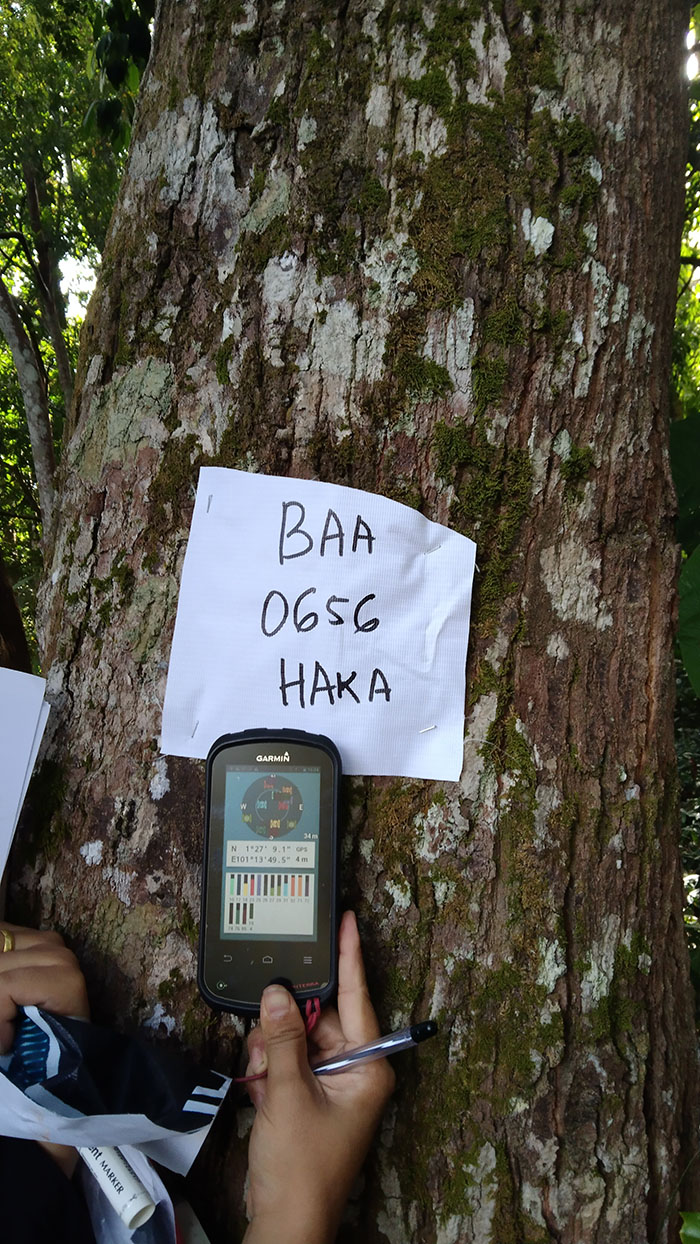 BAA
0656
HAKA
GARMIN
W
E
34 m
N 1°27' 9.1" GPS
E101°13'49.5" 4 m
MARKER